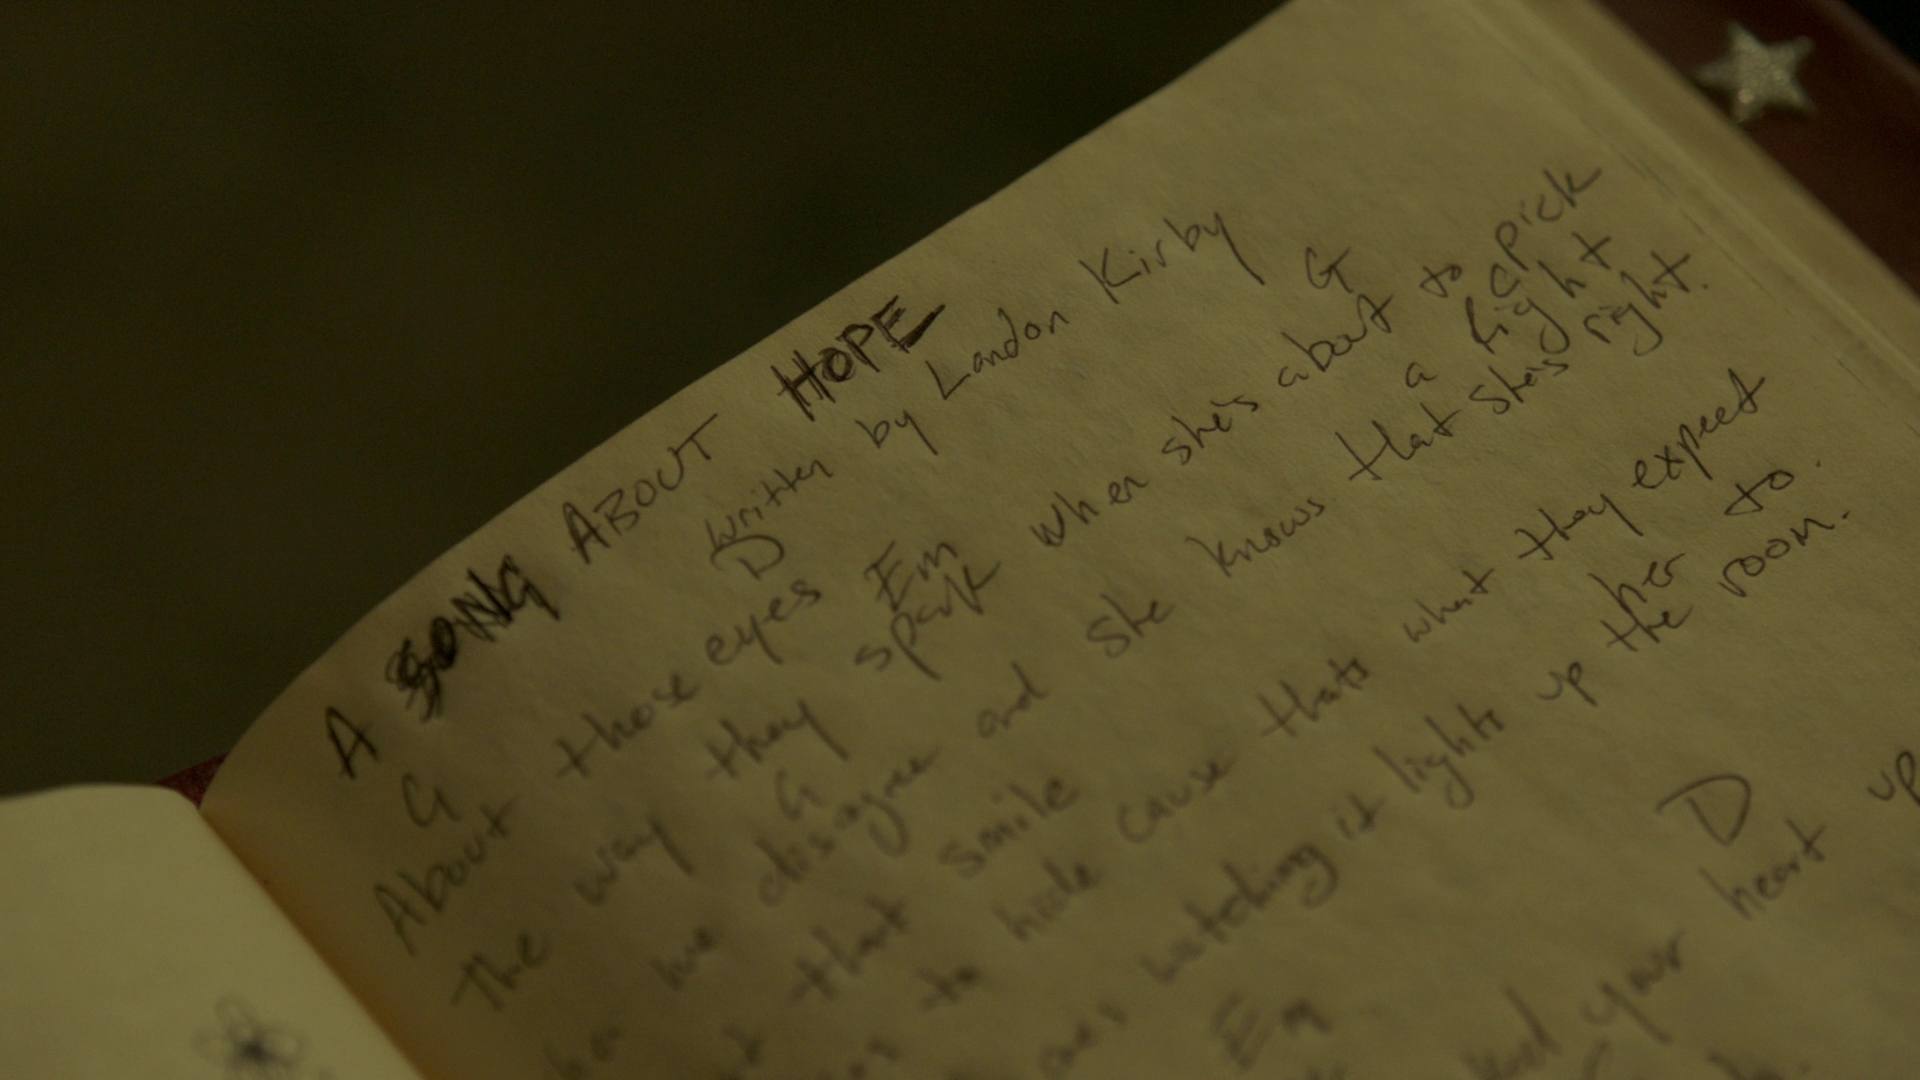 A SONG ABOUT HOPE
written by Landon Kirby
G D Em G C
About those eyes
The way they spark when she's about to pick a fight
G
me disagree and she knows that she's right.
that smile
to hide cause thats what they expect her to.
watching it lights up the room.
Em D
your heart up